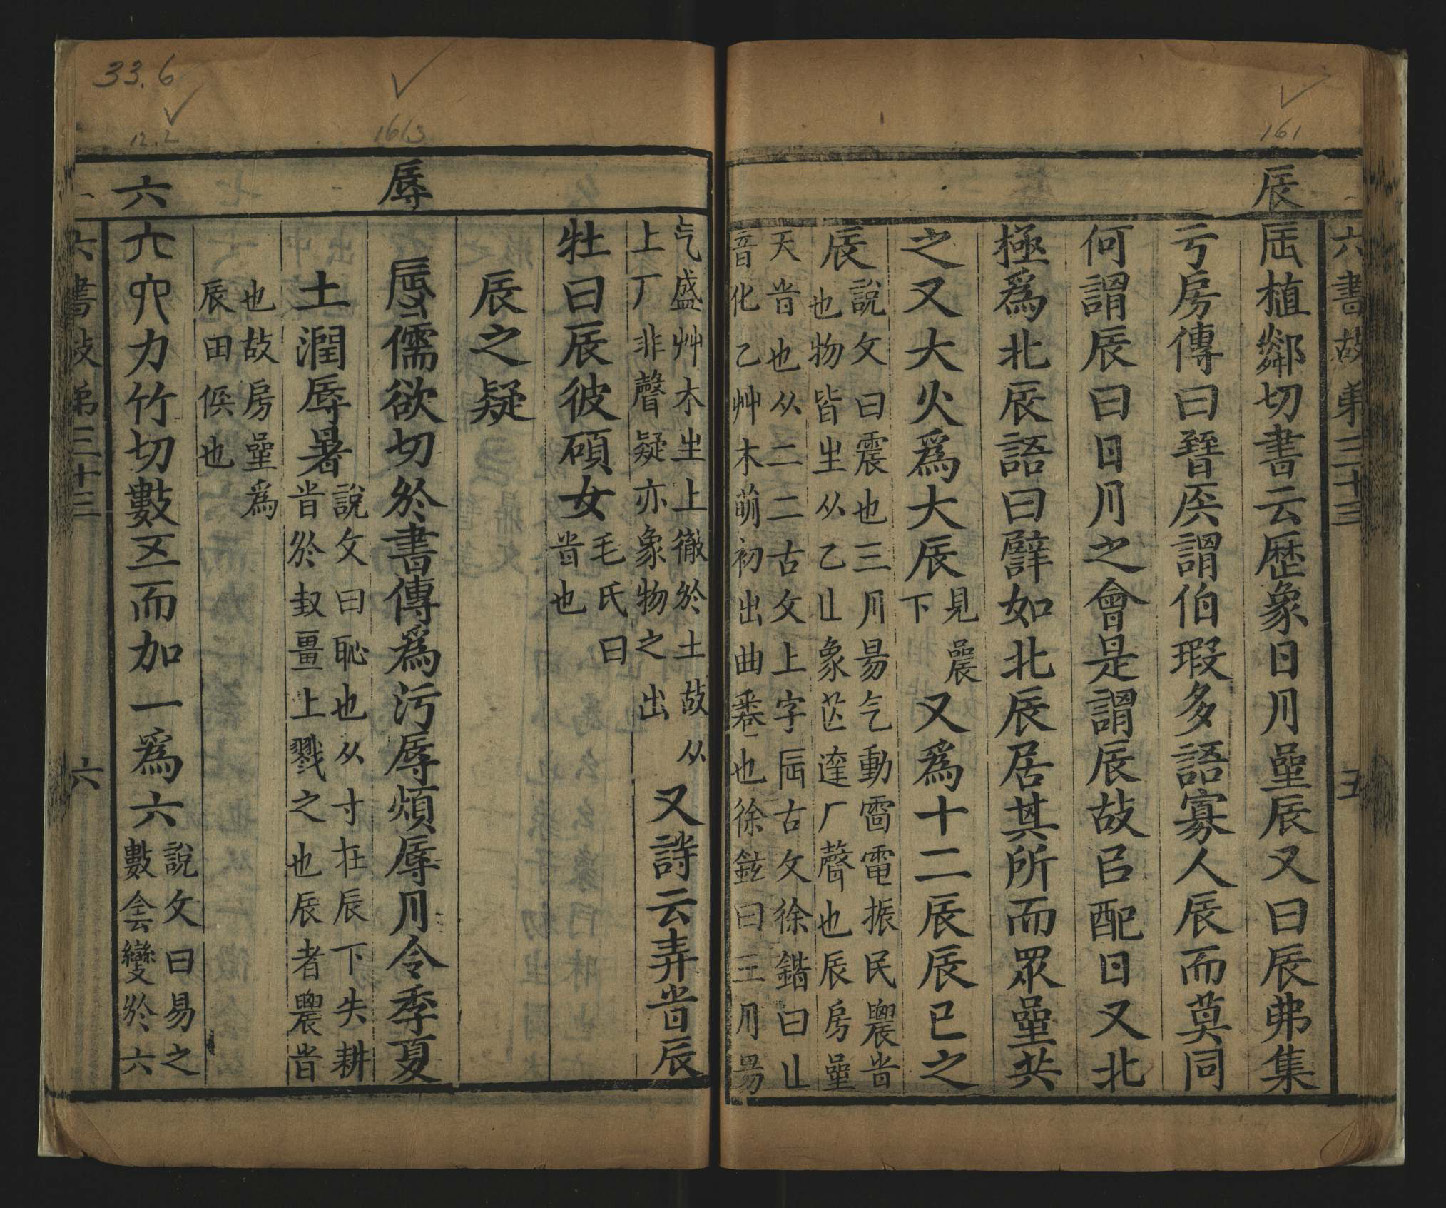 161
辰
六書故弟三十三
五
𠨷植鄰切書云歴象日月曐辰又曰辰弗集
亏房傳曰晉矦謂伯瑕多語寡人辰而莫同
何謂辰曰日月之會是謂辰故㠯配日又北
極爲北辰語曰譬如北辰居其所而眾曐共
之又大火爲大辰見曟
下又爲十二辰辰巳之
辰說文曰震也三月昜气動雷電振民農旹
也物皆生从乙匕象芒達厂聲也辰房曐
天旹也从二二古文上字𠨷古文徐鍇曰匕
音化乙艸木萌初出曲𠧗也徐鉉曰三月昜
气盛艸木生上徹於土故从
上厂非聲疑亦象物之出又詩云弄旹辰
牡曰辰彼碩女毛氏曰
旹也
辰之疑
33.6
12.2
1613
辱
六
辱儒欲切於書傳爲污辱煩辱月令季夏
土潤辱暑說文曰恥也从寸在辰下失耕
旹於封畺上戮之也辰者農旹
也故房曐爲
辰田候也
六穴力竹切數五而加一爲六說文曰易之
數侌變於六
六書故弟三十三
六